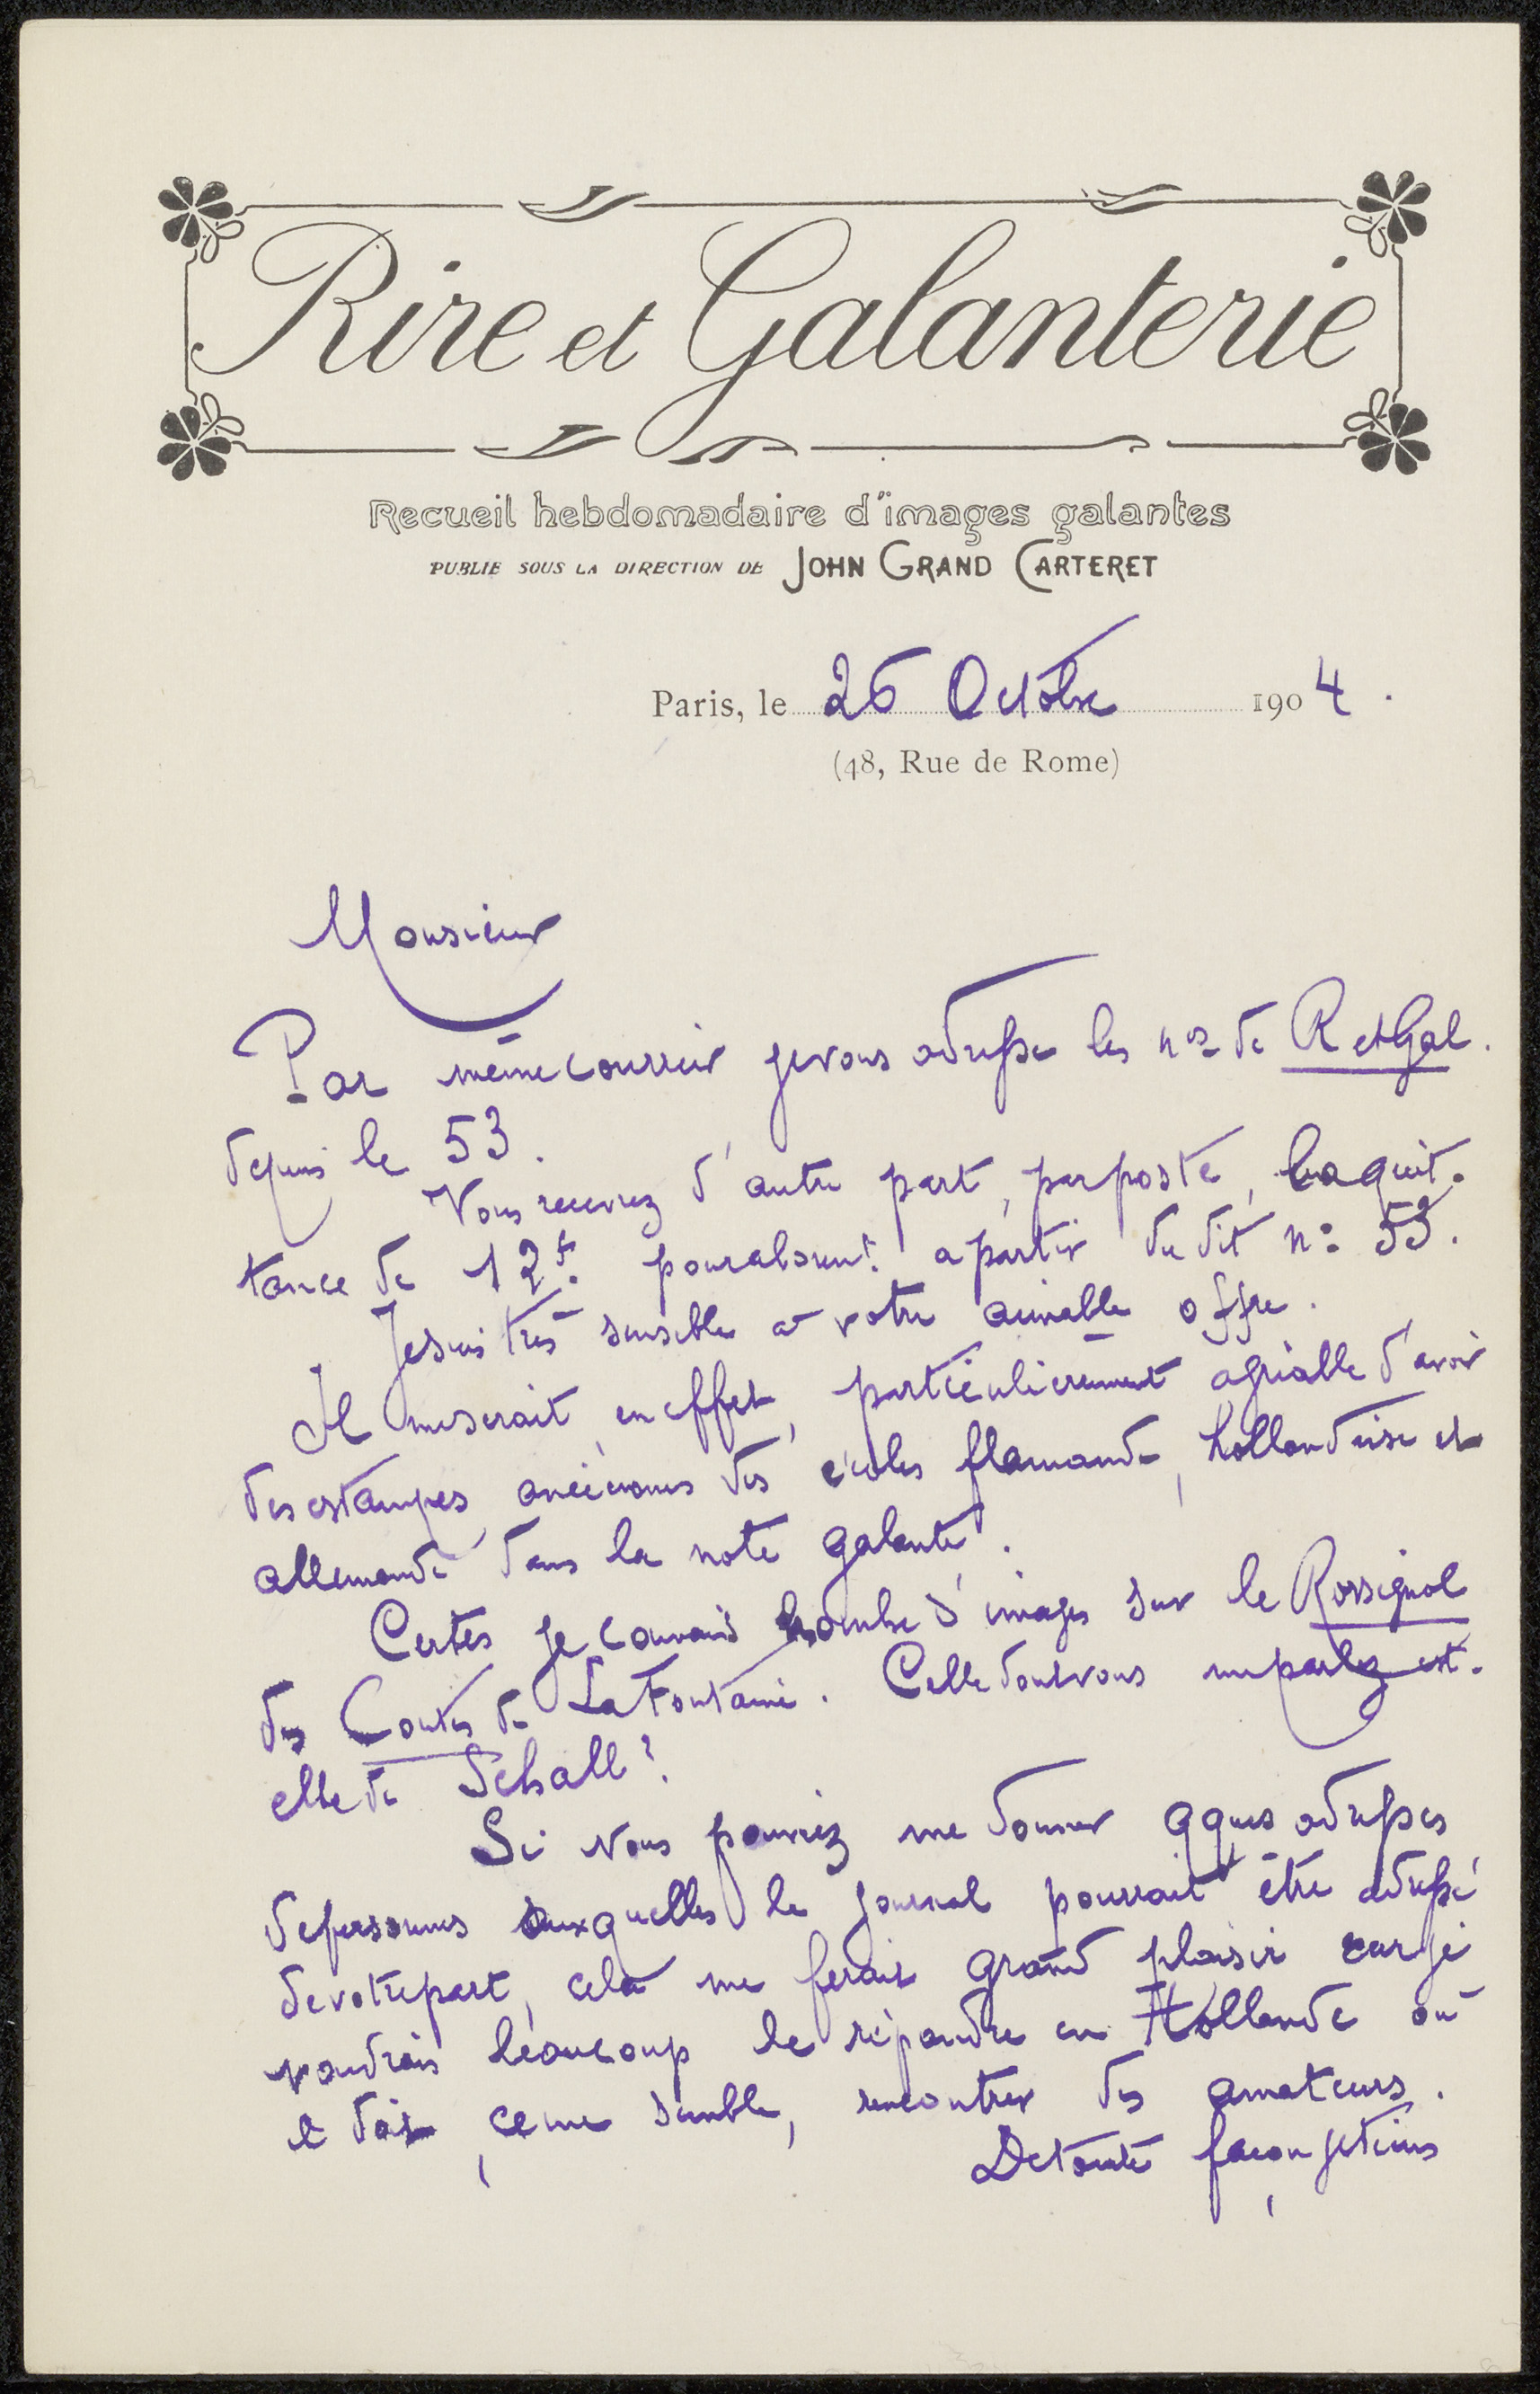 Rire et Galanterie
Recueil hebdomadaire d'images galantes
PUBLIE SOUS LA DIRECTION DE JOHN GRAND CARTERET
Paris, le 26 Octobre 1904.
(48, Rue de Rome)
Monsieur
Par même courrier je vous adresse les nos de R et Gal.
depuis le 53.
Vous recevrez d'autre part, par poste, la quit-
tance de 12f. pour abonnt. a partir du dit no 53.
Je suis très sensible à votre aimable offre.
Il me serait, en effet, particulièrement agréable d'avoir
des estampes anciennes des écoles flamande, hollandaise et
allemande dans la note galante.
Certes je connais nombre d'images sur le Rossignol
des Contes de La Fontaine. Celle dont vous me parlez est-
elle de Schall?
Si vous pouviez me donner qques adresses
de personnes auxquelles le journal pourrait être adressé
de votre part, cela me ferait grand plaisir car je
voudrais beaucoup le répandre en Hollande où
il doit, ce me semble, rencontrer des amateurs.
De toute façon je tiens